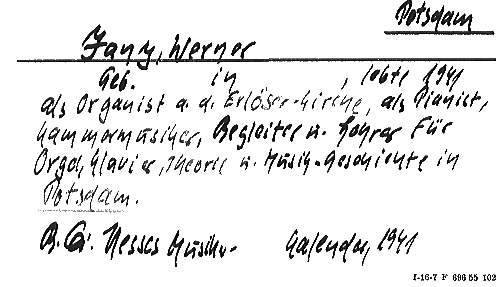 Potsdam
Jany, Werner
Geb. in , lebte 1941
als Organist a. d. Erlöser-Kirche, als Pianist,
Kammermusiker, Begleiter u. Lehrer für
Orgel, Klavier, Theorie u. Musik-Geschichte in
Potsdam.
Hesses Musiker- Kalender, 1941
I-16-7 F 696 55 102